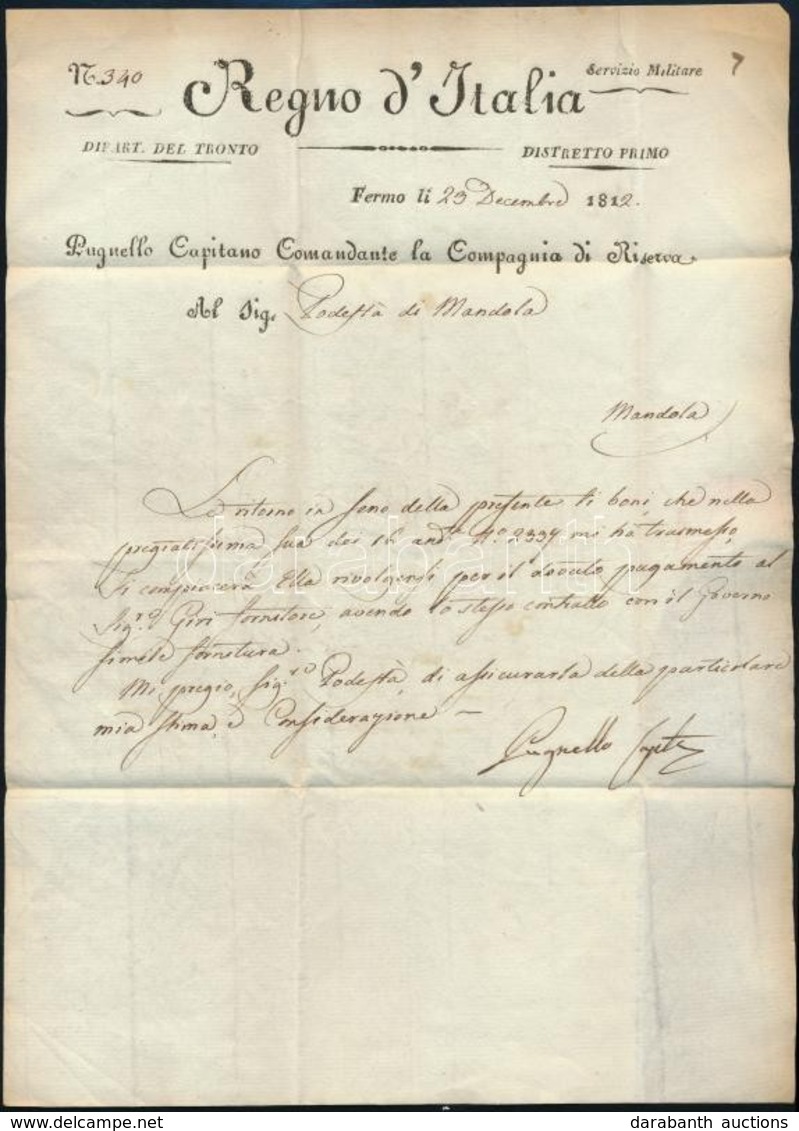 N. 340
Servizio Militare
7
Regno d'Italia
DIPART. DEL TRONTO
DISTRETTO PRIMO
Fermo li 23 Decembre 1812.
Pugnello Capitano Comandante la Compagnia di Riserva
Al Sig. Podestà di Mandola
Mandola
Le ritorno in seno della presente li boni, che nella
pregiatissima sua dei 16 and.te N.o 2337 mi ha trasmesso,
si compiacerà Ella rivolgersi per il dovuto pagamento al
Sig.r Giri fornitore, avendo lo stesso contratto con il Governo
simile fornitura.
Mi pregio, Sig.r Podestà, di assicurarla della particolare
mia stima, e Considerazione —
Pugnello Cap.
darabanth
delcampe.net
darabanth auctions